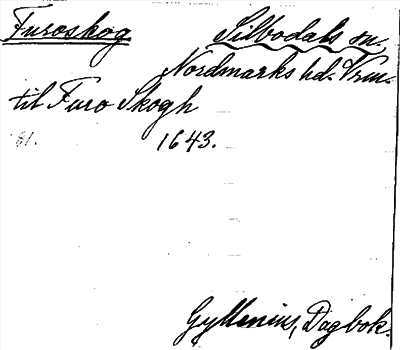 Furoskog Silbodals sn.
Nordmarks hd. Vrm.
til Furo Skogh
81. 1643.
Gyllenius, Dagbok.